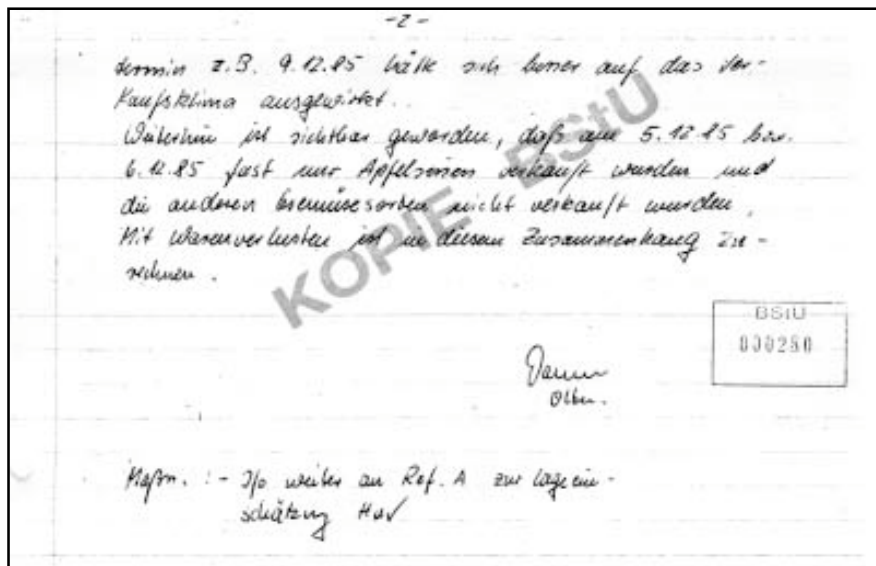 -2-
termin z.B. 9.12.85 hätte sich besser auf das Ver-
kaufsklima ausgewirkt.
Weiterhin ist sichtbar geworden, daß am 5.12.85 bzw.
6.12.85 fast nur Apfelsinen verkauft wurden und
die anderen Gemüsesorten nicht verkauft wurden.
Mit Warenverlusten ist in diesem Zusammenhang zu-
rechnen.
KOPIE BStU
BStU
000280
Oltn.
Maßn.: - I/o weiter an Ref. A zur Lageein-
schätzung